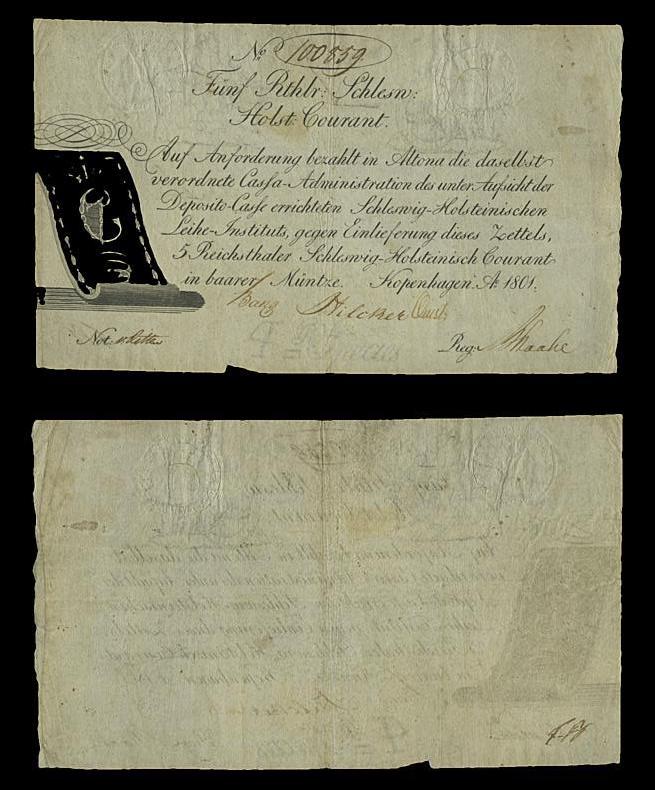 No. 100859
Fünf Rthlr: Schlesw:
Holst: Courant.
Auf Anforderung bezahlt in Altona die daselbst
verordnete Cassa-Administration des unter Aufsicht der
Deposito-Casse errichteten Schleswig-Holsteinischen
Leihe-Instituts, gegen Einlieferung dieses Zettels,
5 Reichsthaler Schleswig-Holsteinisch Courant
in baarer Müntze. Kopenhagen. Ao 1801.
Hilcker
Not:
Reg: